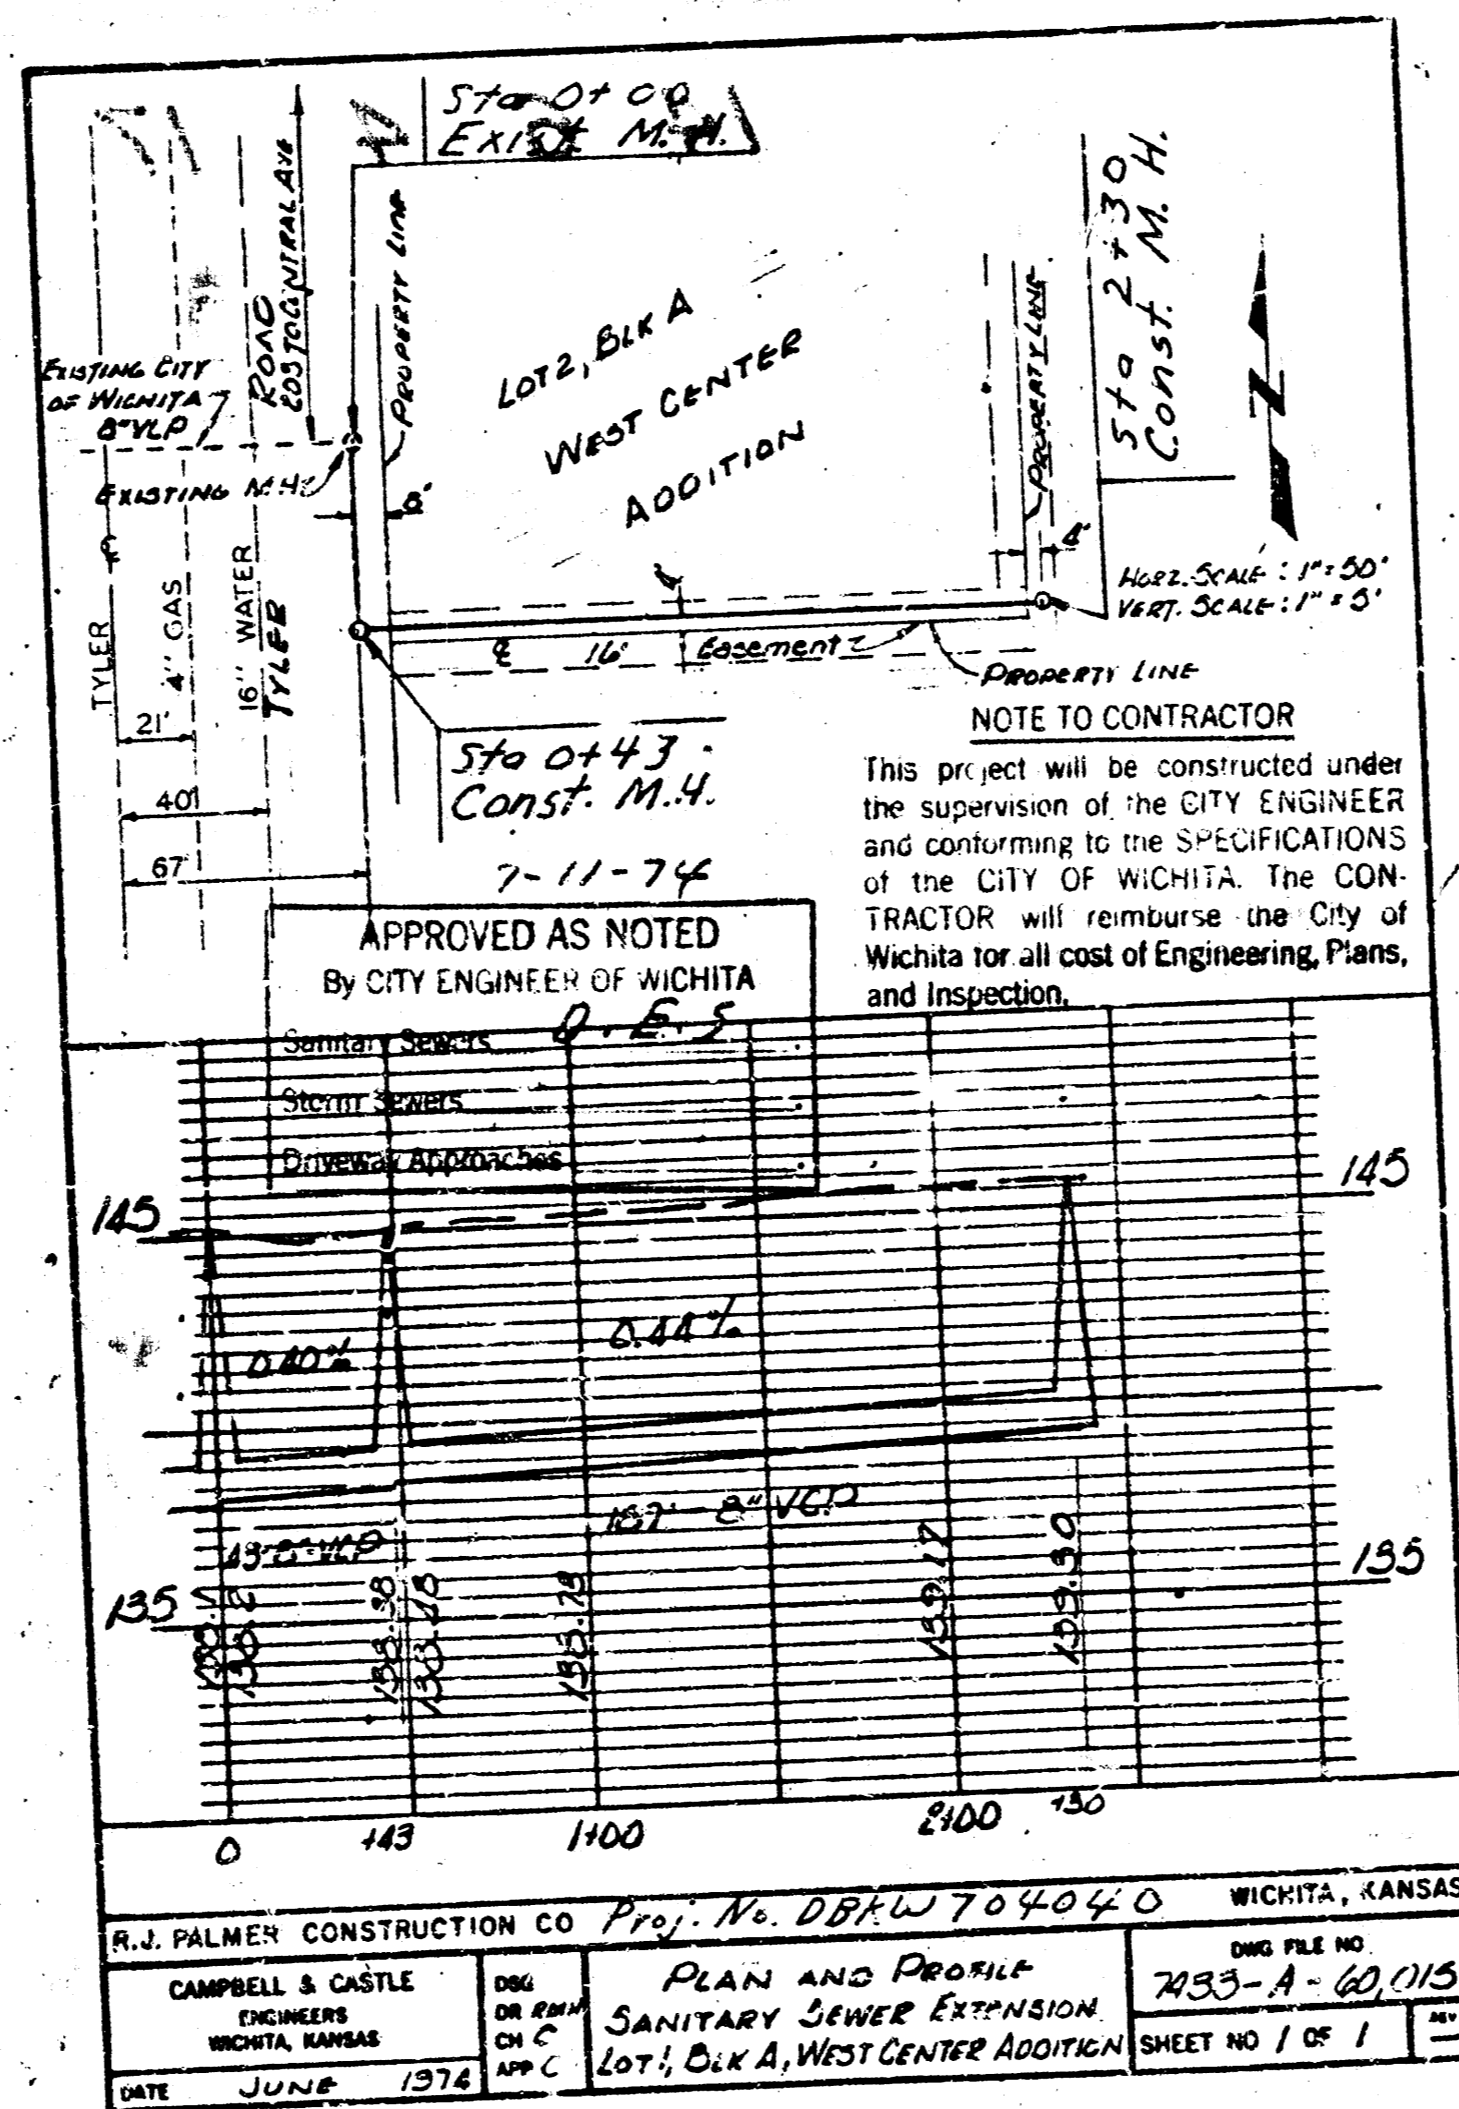 Sta 0+00
Exist. M.H.
ROAD
203' TO CENTRAL AVE
PROPERTY LINE
EXISTING CITY
OF WICHITA
8" VCP
EXISTING M.H.
LOT 2, BLK A
WEST CENTER
ADDITION
PROPERTY LINE
Sta 2+30
Const. M.H.
8'
4'
N
HORZ. SCALE: 1" = 50'
VERT. SCALE: 1" = 5'
TYLER
4" GAS
16" WATER
TYLER
℄ 16' Easement
PROPERTY LINE
21'
40'
67'
Sta 0+43
Const. M.H.
NOTE TO CONTRACTOR
This project will be constructed under
the supervision of the CITY ENGINEER
and conforming to the SPECIFICATIONS
of the CITY OF WICHITA. The CON-
TRACTOR will reimburse the City of
Wichita for all cost of Engineering, Plans,
and Inspection.
7-11-74
APPROVED AS NOTED
By CITY ENGINEER OF WICHITA
Sanitary Sewers
Storm Sewers
Driveway Approaches
145
145
0.40%
0.44%
187' - 8" VCP
135
135
138.38
138.48
138.73
139.17
139.30
0
+43
1+00
2+00
+30
R.J. PALMER CONSTRUCTION CO Proj. No. DBKW 704040 WICHITA, KANSAS
CAMPBELL & CASTLE
ENGINEERS
WICHITA, KANSAS
DATE JUNE 1974
DSG
DR
CH C
APP C
PLAN AND PROFILE
SANITARY SEWER EXTENSION
LOT 1, BLK A, WEST CENTER ADDITION
DWG FILE NO
7433-A-60,015
SHEET NO 1 OF 1
REV